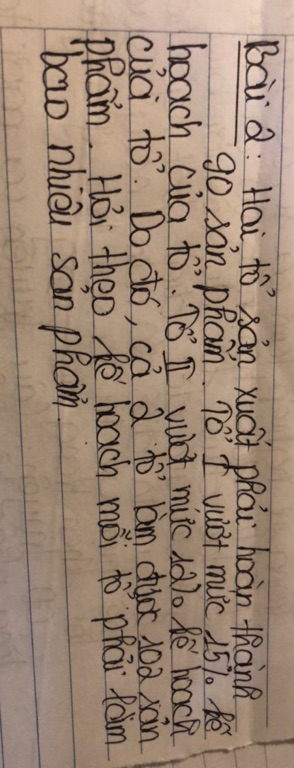 Bài 2: Hai tổ sản xuất phải hoàn thành
90 sản phẩm. Tổ I vượt mức 15% kế
hoạch của tổ. Tổ II vượt mức 12% kế hoạch
của tổ. Do đó, cả 2 tổ làm được 102 sản
phẩm. Hỏi theo kế hoạch mỗi tổ phải làm
bao nhiêu sản phẩm